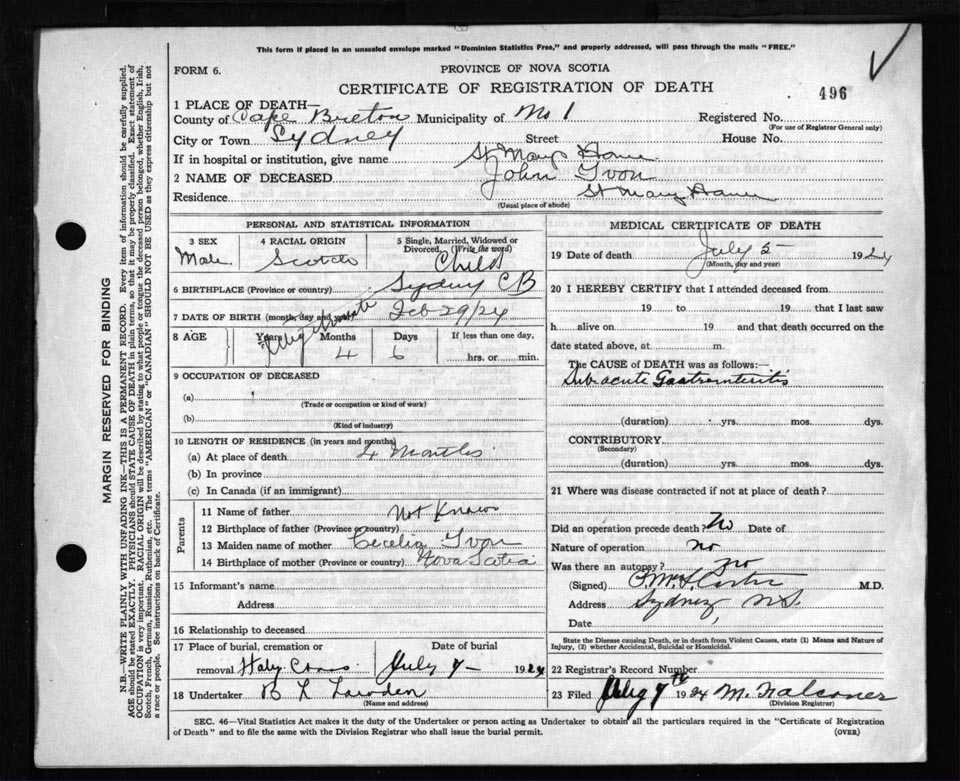 This form if placed in an unsealed envelope marked "Dominion Statistics Free," and properly addressed, will pass through the mails "FREE."
FORM 6.
PROVINCE OF NOVA SCOTIA
CERTIFICATE OF REGISTRATION OF DEATH
496
1 PLACE OF DEATH—
County of Cape Breton Municipality of No 1 Registered No.
(For use of Registrar General only)
City or Town Sydney Street House No.
If in hospital or institution, give name St Marys Home
2 NAME OF DECEASED John Ivon
Residence St Mary Home
(Usual place of abode)
PERSONAL AND STATISTICAL INFORMATION
3 SEX 4 RACIAL ORIGIN 5 Single, Married, Widowed or Divorced, (Write the word)
Male Scotch Child
6 BIRTHPLACE (Province or country) Sydney CB
7 DATE OF BIRTH (month, day and year) Feb 29/24
Illegitimate
8 AGE Years Months Days If less than one day,
4 6 hrs. or min.
9 OCCUPATION OF DECEASED
(a)
(Trade or occupation or kind of work)
(b)
(Kind of industry)
10 LENGTH OF RESIDENCE (in years and months)
(a) At place of death 4 Months
(b) In province
(c) In Canada (if an immigrant)
Parents
11 Name of father Not Known
12 Birthplace of father (Province or country)
13 Maiden name of mother Cecelia Ivon
14 Birthplace of mother (Province or country) Nova Scotia
15 Informant's name
Address
16 Relationship to deceased
17 Place of burial, cremation or Date of burial
removal Holy Cross July 7 1924
18 Undertaker B L
(Name and address)
MEDICAL CERTIFICATE OF DEATH
19 Date of death July 5 1924
(Month, day and year)
20 I HEREBY CERTIFY that I attended deceased from
19 to 19 that I last saw
h alive on 19 and that death occurred on the
date stated above, at m.
The CAUSE OF DEATH was as follows:—
Subacute Gastroenteritis
(duration) yrs. mos. dys.
CONTRIBUTORY.
(Secondary)
(duration) yrs. mos. dys.
21 Where was disease contracted if not at place of death?
Did an operation precede death? No Date of
Nature of operation no
Was there an autopsy? no
(Signed) M.D.
Address Sydney, N.S.
Date
State the Disease causing Death, or in death from Violent Causes, state (1) Means and Nature of Injury, (2) whether Accidental, Suicidal or Homicidal.
22 Registrar's Record Number
23 Filed July 7th 1924 M. Falconer
(Division Registrar)
SEC. 46—Vital Statistics Act makes it the duty of the Undertaker or person acting as Undertaker to obtain all the particulars required in the "Certificate of Registration
of Death" and to file the same with the Division Registrar who shall issue the burial permit. (OVER)
MARGIN RESERVED FOR BINDING
N.B.—WRITE PLAINLY WITH UNFADING INK—THIS IS A PERMANENT RECORD. Every item of information should be carefully supplied.
AGE should be stated EXACTLY. PHYSICIANS should STATE CAUSE OF DEATH in plain terms, so that it may be properly classified. Exact statement of
OCCUPATION is very important. RACIAL ORIGIN will be described by stating to what people or tongue the deceased person belonged, whether English, Irish,
Scotch, French, German, Russian, Ruthenian, etc. The terms "AMERICAN" or "CANADIAN" SHOULD NOT BE USED as they express citizenship but not
a race or people. See instructions on back of Certificate.